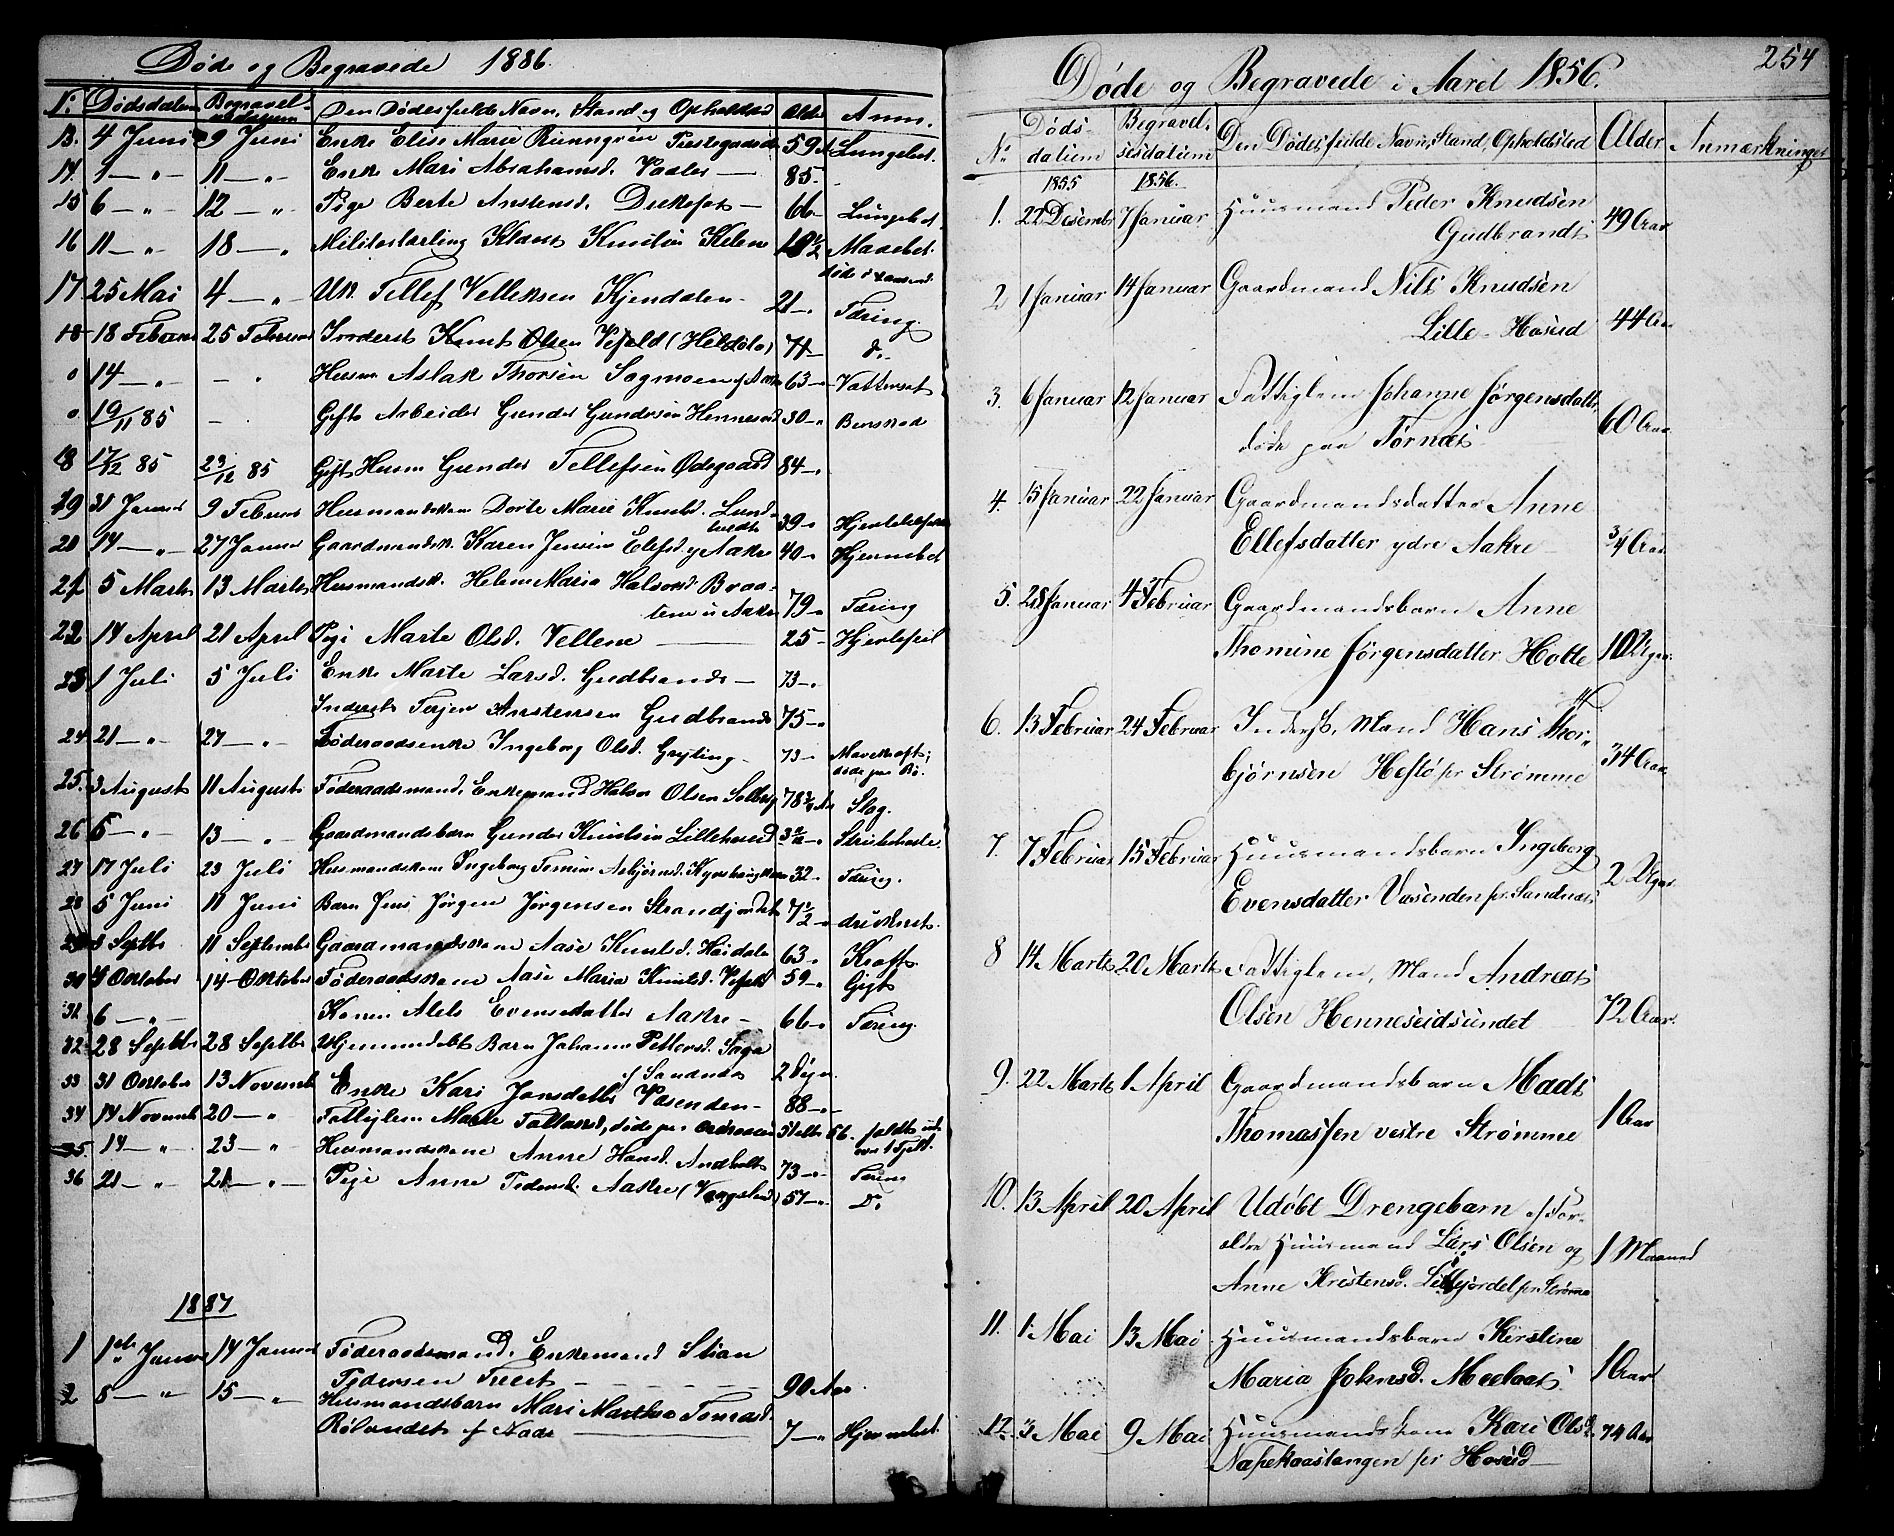 Døde og Begravede 1886.
No Dødsdatum Begravelsesdatum Den Dødes fulde Navn, Stand og Opholdssted Alder Anm.
13. 4 Juni 9 Juni Enke Elise Marie 59 Lungebet.
14. 1 — " 11 — " Enke Mari Abrahamsd. 85.
15 6 — " 12 — " Pige Berte Anstensd. 66 Lungebet.
16 11 — " 18 — " 18 1/2 Mavebet.
17 25 Mai 4 — " Uk. Tellef Velleksen Kjendalen 21 — Tæring
18 18 Februar 25 Februar Inderst Knut Olsen Vefald (Heldøla) 71 — do.
o 14 — " - " Husm Aslak Thorsen Sagmoen 63 — Vattersot
o 19/11 85 - Gift Arbeider Gunder Gundersen 30 — Benskad
18 17/12 85 23/12 85 Gift Husm Gunder Tellefsen Ødegaard 84 —
19 31 Januar 9 Februar Husmandskone Dorte Marie Knutsd. 39 —
20 14 — " 27 Januar Gaardmandsk. Karen Jensine Elefsd. y Aakre 40 — Hjernebet
21 5 Marts 13 Marts Husmandsk. Helene Maria Halvorsd. Braatene i Aakre 79 — Tæring
22 14 April 21 April Pige Marte Olsd. Vellene 25 — Hjertefeil
23 1 Juli 5 Juli Enke Marte Larsd. Gudbrands — 73 —
Inderst Terjer Anstensen Gudbrands 75 —
24 21 — " 27 — " Føderaadsenke Ingeborg Olsd. Grejting 73 — Mavekræft; døde paa Bø.
25. 3 August 11 August Føderaadsmand, Enkemand Halvor Olsen 78 Slag.
26 5 — " 13 — " Gaardmandsbarn Gunder Knutsen Lillehosed 3 Strubehoste
27 17 Juli 23 Juli Husmandskone Ingeborg Tomine Asbjørnsd. 32 — Tæring.
28 5 Juni 11 Juni Barn Jens Jørgen Jørgensen Strandjordet 7 1/2 — druknet.
29 3 Septbr 11 September Gaardmandskone Aase Knutsd. Høidalen 63 — Kræft
30 4 October 14 October Føderaadskone Aase Maria Knutsd. Vefald 59 — Gigt
31 6 — " Karen Alets Evensdatter Aakre — 66 — Tæring.
32 28 Septbr 28 Septbr Hjemmedøbt Barn Johanne Pettersd. Saga
af Sandnæs 2 Døgn
33 31 October 13 November Enke Kari Jonsdatter Vasenden — 88 —
34 14 Novemb 20 — " Fattiglem Marte
35. 14 — " 23 — " Husmandskone Anne Hansd. Andholt 73 — Tæring
36 21 — " 21 — " Pige Anne Pedersd. Aakre 57 — Do
1887
1 1ste Januar 14 Januar Føderaadsmand, Enkemand Stian
Pedersen Tveet — 90 Aar.
2 8 — " 15 — " Husmandsbarn Mari Marthea Tomasd.
Rølandet af Næs 7 — Hjernebet.
254
Døde og Begravede i Aaret 1856.
No Dødsdatum Begravelsesdatum Den Dødes fulde Navn, Stand, Opholdsted Alder Anmærkninger
1855 1856.
1. 22 Desembr 7 Januar Huusmand Peder Knudsen
Gudbrands 49 Aar
2 1 Januar 14 Januar Gaardmand Nils Knudsen
Lille-Hosud 44 Aar
3. 6 Januar 12 Januar Fattiglem Johanne Jørgensdatter
døde paa Tørnæs 60 Aar
4. 15 Januar 22 Januar Gaardmandsdatter Anne
Ellefsdatter ydre Aakre 3/4 Aar
5. 28 Januar 4 Februar Gaardmandsbarn Anne
Thomine Jørgensdatter Holte 10 Uger
6. 13 Februar 24 Februar Inderst, Mand Hans Thor-
bjørnsen Hestø pr Strømme 34 Aar
7. 7 Februar 15 Februar Huusmandsbarn Ingeborg
Evensdatter Vasenden pr. Sandnæs 2 Uger
8 14 Marts 20 Marts Fattiglem, Mand Andreas
Olsen Henneseidsundet 72 Aar.
9. 22 Marts 1 April Gaardmandsbarn Mads
Thomassen vestre Strømme 1 Aar
10. 13 April 20 April Udøbt Drengebarn af For-
ældre Huusmand Lars Olsen og
Anne Kristensd. Lillejordet pr. Strømme 1 Maaned
11. 1 Mai 13 Mai Huusmandsbarn Kirstine
Maria Johnsd. Meelaas 1 Aar
12. 3 Mai 9 Mai Huusmandskone Kari Olsd.
Næpekaastangen pr Hosud — 74 Aar